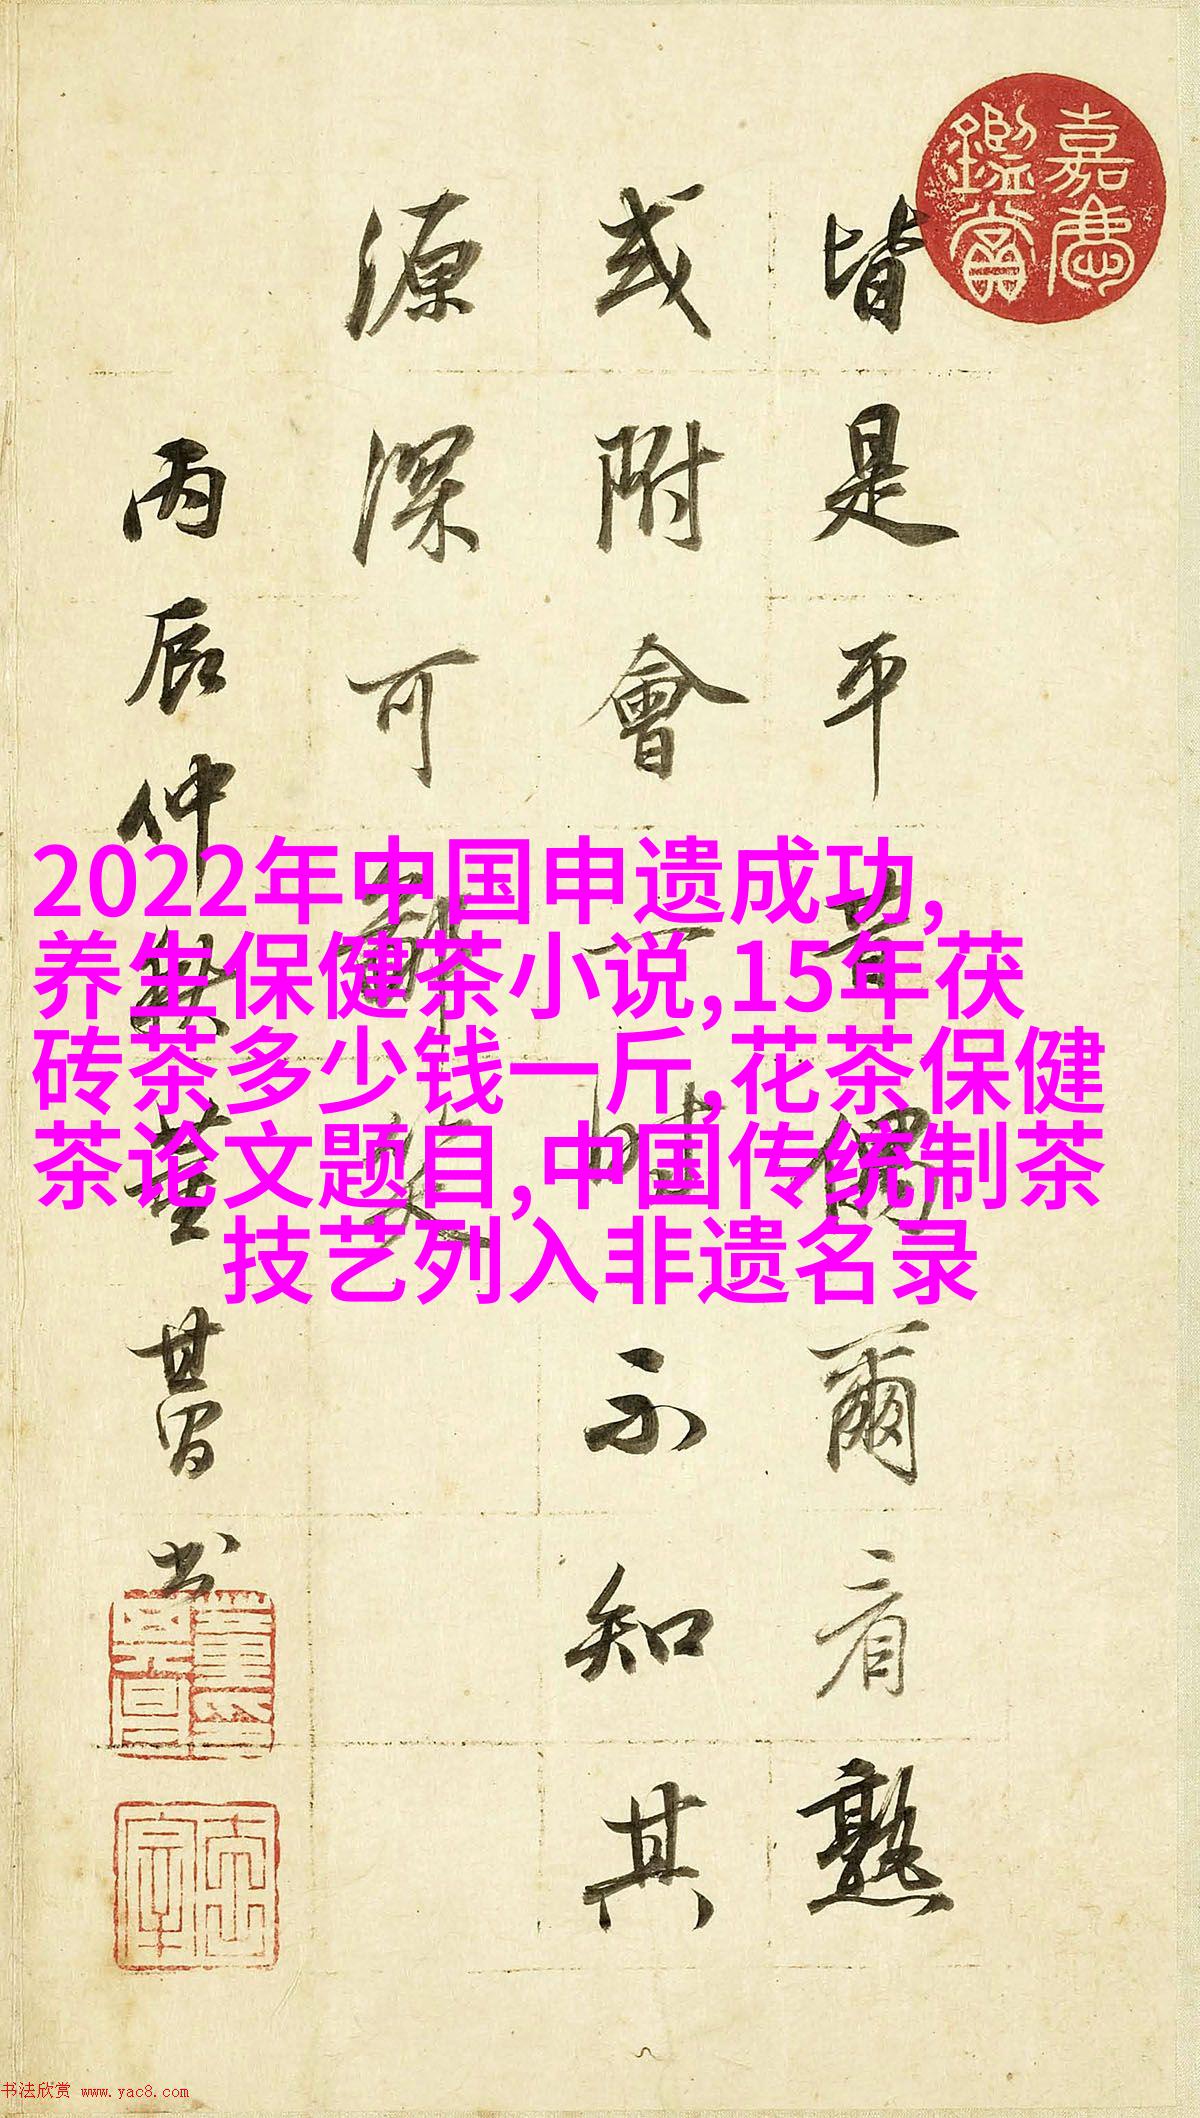 嘉慶鑑賞
皆是平昔偶爾看熟
或附會一時不知其
源深可
丙辰仲秋董其昌書
2022年中国申遗成功,
养生保健茶小说,15年茯
砖茶多少钱一斤,花茶保健
茶论文题目,中国传统制茶
技艺列入非遗名录
书法欣赏 www.yac8.com